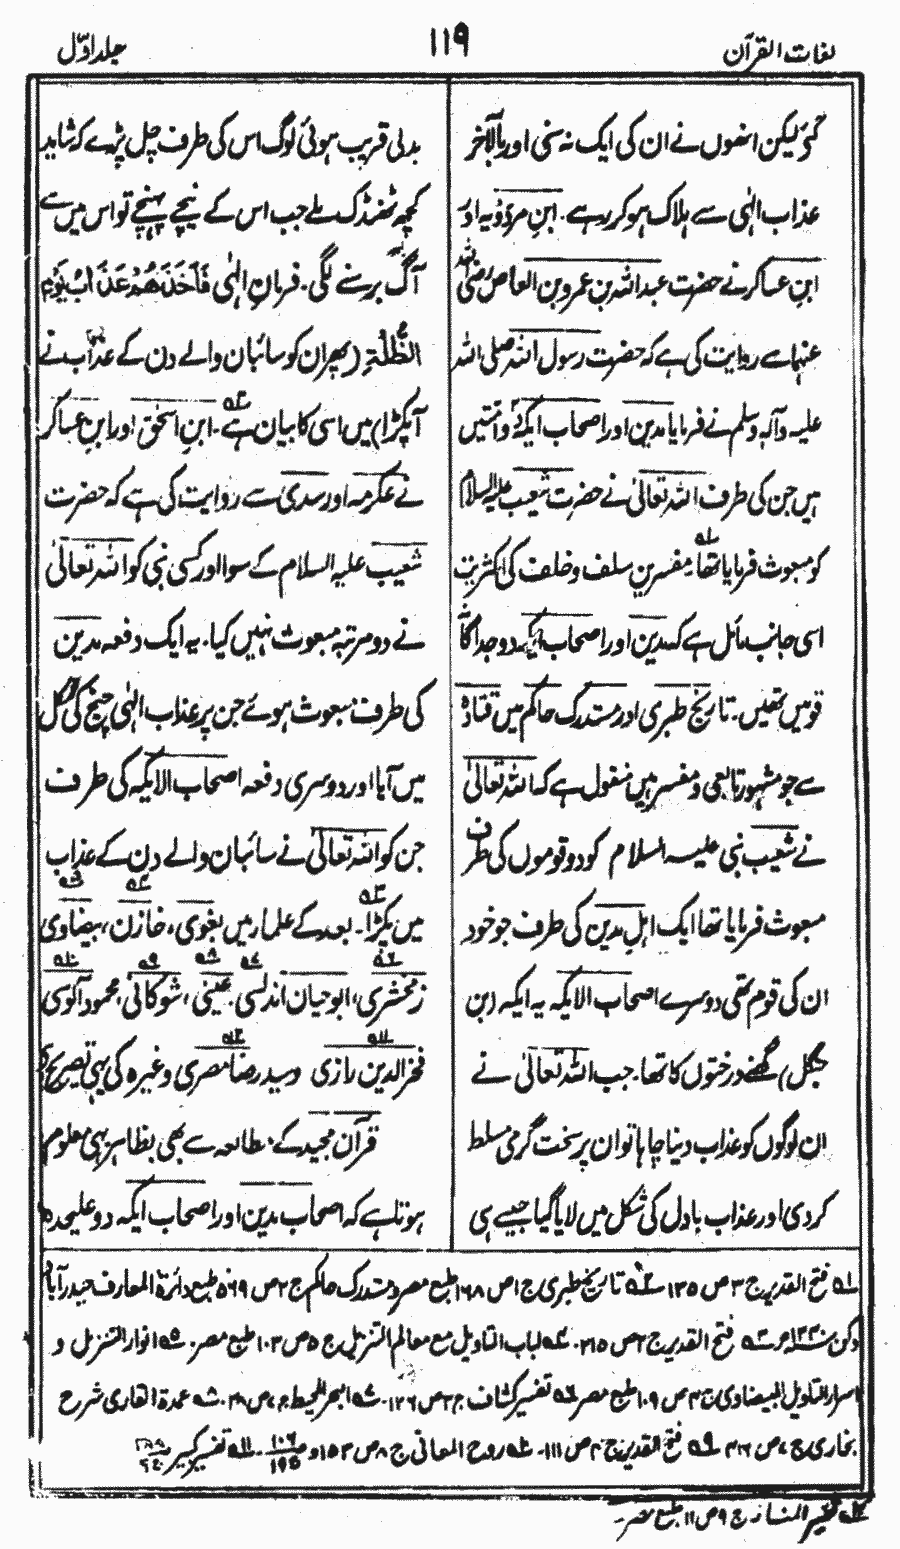 لغات القرآن
۱۱۹
جلد اوّل
گئی لیکن انھوں نے ان کی ایک نہ سنی اور بالآخر
عذاب الٰہی سے ہلاک ہو کر رہے۔ ابن مردویہ اور
ابن عساکر نے حضرت عبد اللہ بن عمرو بن العاص رضی اللہ
عنہما سے روایت کی ہے کہ حضرت رسول اللہ صلی اللہ
علیہ وآلہ وسلم نے فرمایا مدین اور اصحاب ایکہ دو امتیں
ہیں جن کی طرف اللہ تعالیٰ نے حضرت شعیب علیہ السلام
کو مبعوث فرمایا تھا۔ مفسرین سلف و خلف کی اکثریت
اسی جانب مائل ہے کہ مدین اور اصحاب ایکہ دو جداگانہ
قومیں تھیں۔ تاریخ طبری اور مستدرک حاکم میں قتادہ
سے جو مشہور تابعی و مفسر ہیں منقول ہے کہ اللہ تعالیٰ
نے شعیب نبی علیہ السلام کو دو قوموں کی طرف
مبعوث فرمایا تھا ایک اہل مدین کی طرف جو خود
ان کی قوم تھی دوسرے اصحاب الایکہ یہ ایکہ (بن
جنگل) گھنے درختوں کا تھا۔ جب اللہ تعالیٰ نے
ان لوگوں کو عذاب دینا چاہا تو ان پر سخت گرمی مسلط
کر دی اور عذاب بادل کی شکل میں لایا گیا جیسے ہی
بدلی قریب ہوئی لوگ اس کی طرف چل پڑے کہ شاید
کچھ ٹھنڈک ملے جب اس کے نیچے پہنچے تو اس میں سے
آگ برسنے لگی۔ فرمان الٰہی فَاَخَذَهُمْ عَذَابُ يَوْمِ
الظُّلَّةِ (پھر ان کو سائبان والے دن کے عذاب نے
آپکڑا) میں اسی کا بیان ہے۔ ابن اسحٰق اور ابن عساکر
نے عکرمہ اور سدی سے روایت کی ہے کہ حضرت
شعیب علیہ السلام کے سوا اور کسی نبی کو اللہ تعالیٰ
نے دو مرتبہ مبعوث نہیں کیا۔ یہ ایک دفعہ مدین
کی طرف مبعوث ہوئے جن پر عذاب الٰہی چیخ کی شکل
میں آیا اور دوسری دفعہ اصحاب الایکہ کی طرف
جن کو اللہ تعالیٰ نے سائبان والے دن کے عذاب
میں پکڑا۔ بعد کے علماء میں بغوی، خازن، بیضاوی
زمخشری، ابو حیان اندلسی، عینی، شوکانی، محمود آلوسی
فخر الدین رازی و سید رضا مصری وغیرہ کی یہی تصریح ہے
قرآن مجید کے مطالعہ سے بھی بظاہر یہی معلوم
ہوتا ہے کہ اصحاب مدین اور اصحاب ایکہ دو علیحدہ
۱؎ فتح القدیر ج ۳ ص ۱۳۵ ۲؎ تاریخ طبری ج ۱ ص ۱۶۸ طبع مصر و مستدرک حاکم ج ۲ ص ۵۶۹ طبع دائرۃ المعارف حیدرآباد
دکن ۳؎ فتح القدیر ج ۲ ص ۲۱۵۔ ۴؎ لباب التاویل مع معالم التنزیل ج ۵ ص ۱۰۳ طبع مصر۔ ۵؎ انوار التنزیل و
اسرار التاویل للبیضاوی ج ۴ ص ۱۰۹ طبع مصر ۶؎ تفسیر کشاف ج ۳ ص ۱۲۶۔ ۷؎ البحر المحیط ج ۷ ص ۳۸۔ ۸؎ عمدۃ القاری شرح
بخاری ج ۷ ص ۴۱۶ ۹؎ فتح القدیر ج ۴ ص ۱۱۱۔ ۱۰؎ روح المعانی ج ۸ ص ۱۵۳ و ۱۰۶/۱۹۵۔ ۱۱؎ تفسیر کبیر
۱۲؎ تفسیر المنار ج ۹ ص ۱۱ طبع مصر۔